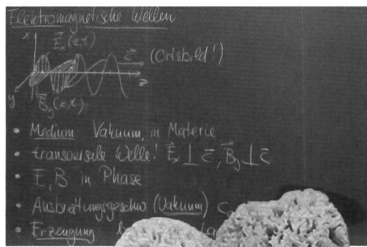 Elektromagnetische Wellen
x E⃗ₓ(z,t)
c⃗ (Ortsbild!)
z
y B⃗ᵧ(z,t)
• Medium Vakuum, in Materie
• transversale Welle! E⃗ₓ ⊥ c⃗, B⃗ᵧ ⊥ c⃗
• E, B in Phase
• Ausbreitungsgeschw (Vakuum) c
• Erzeugung